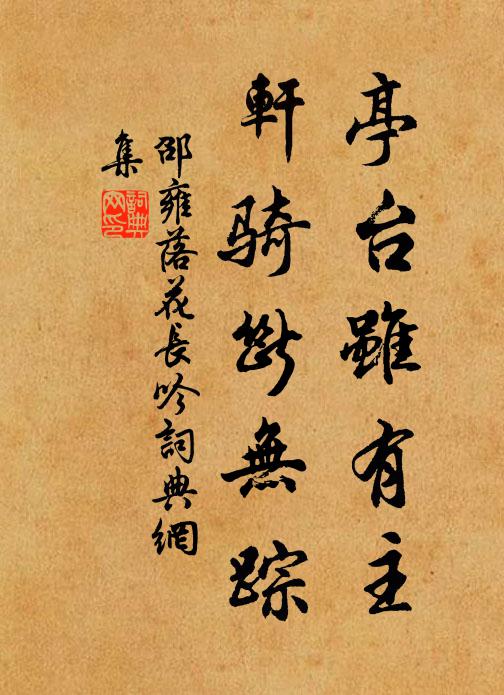 亭台雖有主
軒騎斷無踪
邵雍落花長吟詞典網
集
詞典
网印